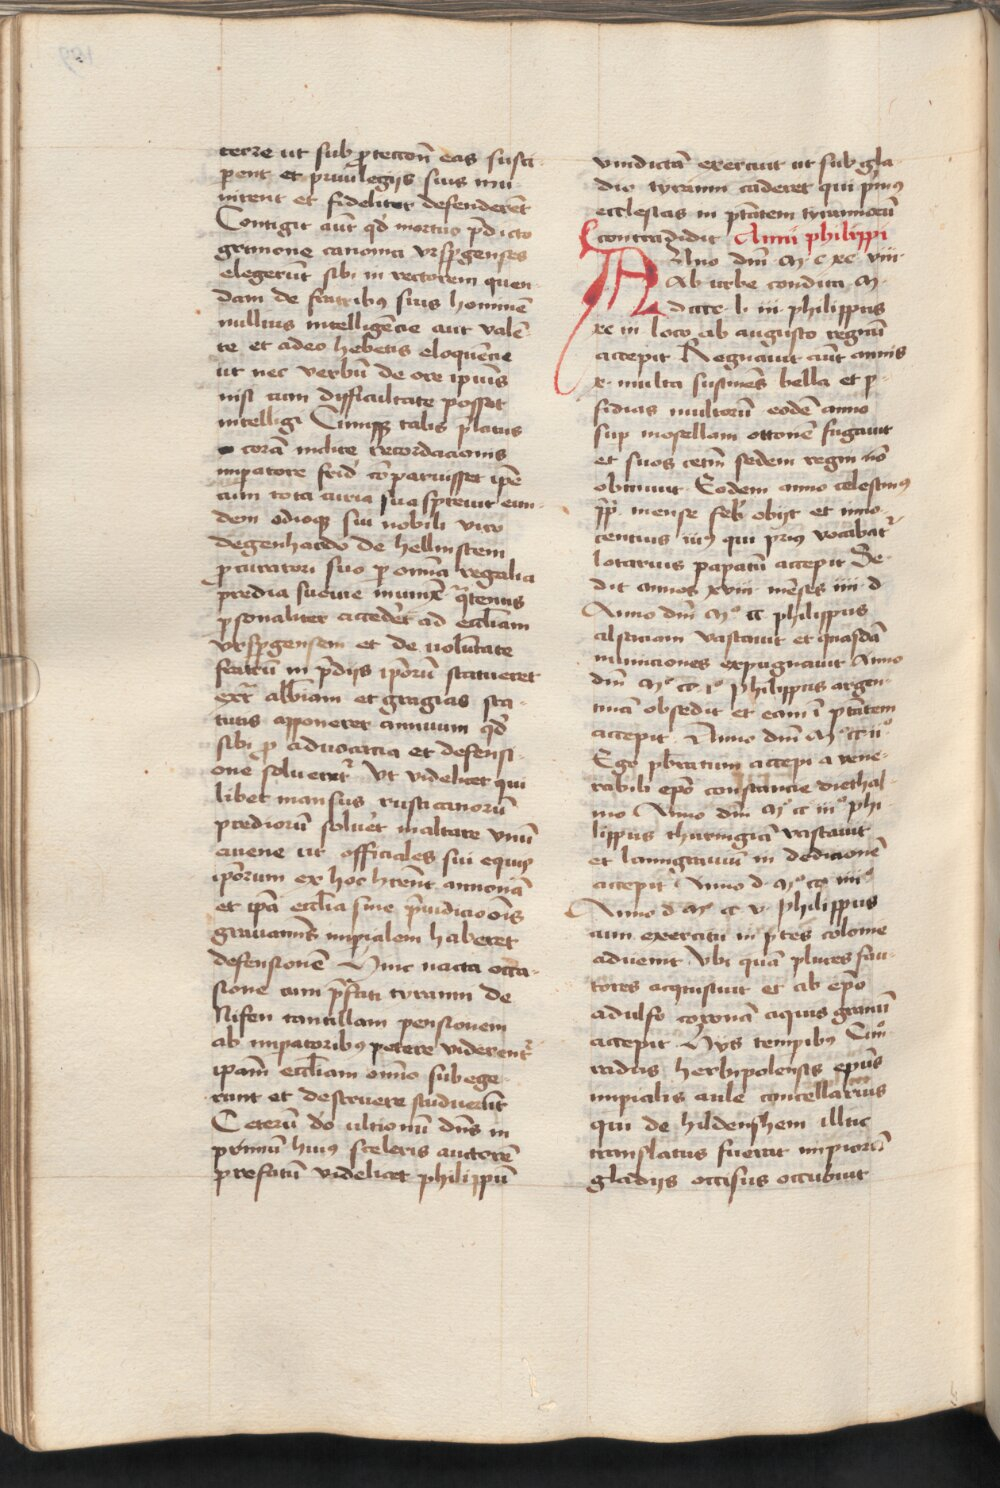 terre ut sub ꝓtectōn̄ eas susci
perēt et priuilegijs suis mu
nirent et fideliter defenderēt
Contigit aūt qd̄ mortuo p̄dicto
grimone canonici vrspgenses
elegerūt sibi in rectorem quen
dam de fratribꝰ suis hominē
nullius intelligēcie aut valē
te et adeo hebetis eloquēcie
ut nec verbū de ore ipius
nisi cum difficultate posset
intelligi Cumqꝫ talis p̄latus
corā inclite recordacionis
impatore frid cōparuisset ipē
cum tota curia sua spreuit eun
dem odioqꝫ sui nobili viro
degenhardo de hellinstein
ꝓcuratori suo p om̄ia regalia
predia sueuie iniunx̄ q̄tenus
psonaliter accedēt ad ecclīam
vrspgensem et de volūtate
fratrū in p̄dijs ipōrū statueret
ex̄ albīam et grangias sta
tutis apponeret annuum qd̄
sibi ꝓ aduocacia et defensi
one soluerēt Vt videlicet qui
libet mansus rusticanorū
prediorū soluet maltare vnū
auene ut officiales sui equis
ipōrum ex hoc hr̄ent annonā
et ipā ecclīa sine p̄iudicio oīs
grauaminis impialem haberet
defensionē Hinc nacta occa
sione cum p̄fati tyranni de
Nifen tantillam pensionem
ab impatoribꝰ petere viderent̄
ipam̄ ecclīam om̄io subege
runt et destruere studuerūt
Ceterū do ultionū dn̄s in
primū huiꝰ sceleris auctorē
prefatū videlicet philippū
vindictā exercuit ut sub gla
dio tyranni caderet qui p̄mꝰ
ecclesias in p̄tātem tyrannorū
contradidit Anni philippi
Anno dm̄ M c xc viii
Ab urbe condita M
dccc l iii philippus
xc iii loco ab augusto regnū
accepit Regnauit aūt annis
x multa sustinēs bella et p
fidias multorū eodē anno
sup mosellam ottonē fugauit
et suos cetm̄ sedem regni nō
obtinuit Eodem anno celestinꝰ
pp̄ mense feb̄ obijt et inno
centius iiiꝰ qui priꝰ vocabat̄
lotarius papatū accepit Se
dit annos xviii mēses iiii d
Anno dm̄ Mº cc philippus
alsaciam vastauit et quasdā
municiones expugnauit Anno
dm̄ Mº cc iº philippus argen
tinā obsedit et eam ī p̄tātem
accepit Anno dm̄ Mº cc iiº
Ego pb̄ratum accepi a vene
rabili epō constancie diethal
mo Anno dm̄ Mº cc iiiº phi
lippus thuringiā vastauit
et lanngrauiū in dedicionē
accepit Anno d Mº cc iiiiº
Anno d Mº cc v philippus
cum exercitu in p̄tes colonie
aduenit Vbi quā plures fau
tores acq̄isiuit et ab epō
adulfo coronā aquisgranū
accepit Hijs tempibꝰ Cūº
radus herbipolensis epūs
impialis aule concellarius
qui de hildenshem illuc
translatus fuerat impiorū
gladijs occisus occubuit